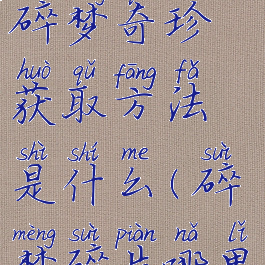 碎梦奇珍
huò qǔ fāng fǎ
获取方法
shì shí me suì
是什么(碎
mèng suì piàn nǎ lǐ
梦碎片哪里